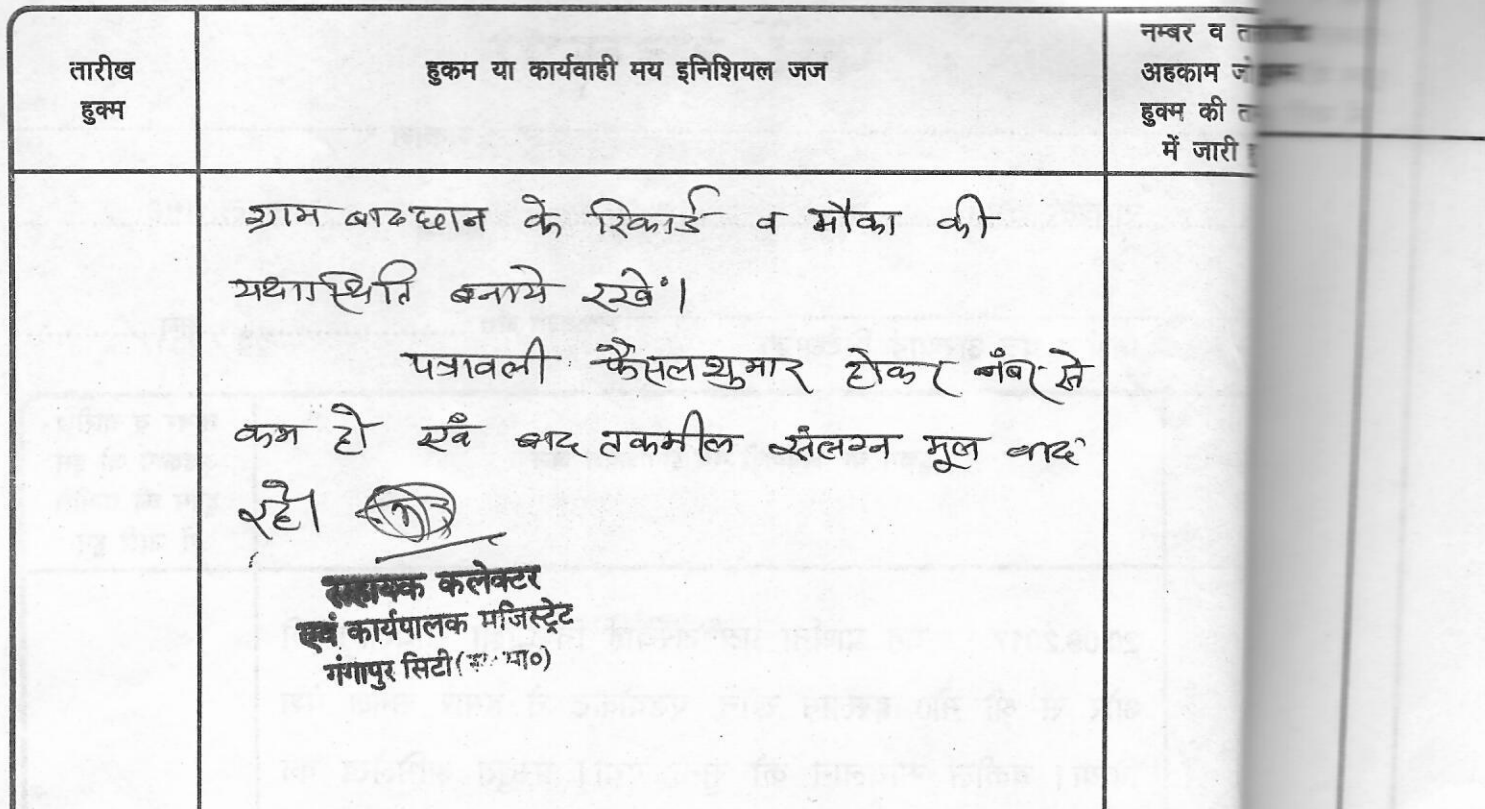 तारीख
हुक्म
हुकम या कार्यवाही मय इनिशियल जज
नम्बर व
अहकाम जो
हुक्म की
में जारी
ग्राम बाढछान के रिकार्ड व मौका की
यथास्थिति बनाये रखें।
पत्रावली फैसलशुमार होकर नंबर से
कम हो एवं बाद तकमील संलग्न मूल वाद
रहे।
सहायक कलेक्टर
एवं कार्यपालक मजिस्ट्रेट
गंगापुर सिटी